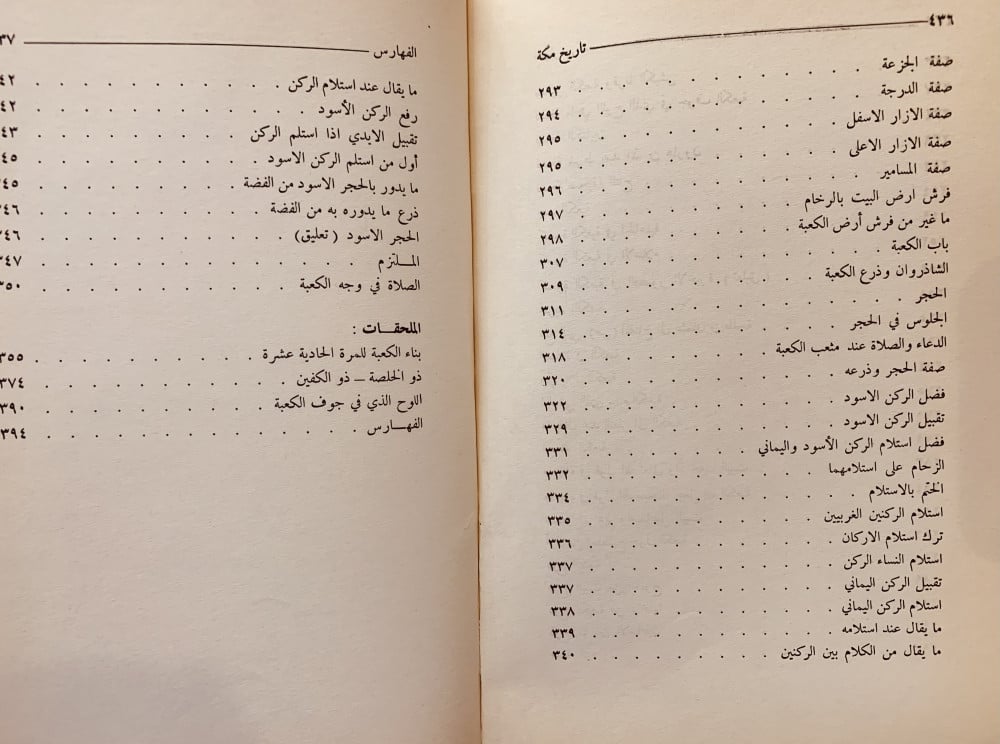 ٤٣٦ تاريخ مكة
صفة الجزعة . . . . . . . . . . ٢٩٣
صفة الدرجة . . . . . . . . . . ٢٩٤
صفة الازار الاسفل . . . . . . . . . . ٢٩٥
صفة الازار الاعلى . . . . . . . . . . ٢٩٥
صفة المسامير . . . . . . . . . . ٢٩٦
فرش ارض البيت بالرخام . . . . . . . . ٢٩٧
ما غير من فرش أرض الكعبة . . . . . . . . ٢٩٨
باب الكعبة . . . . . . . . . . ٣٠٧
الشاذروان وذرع الكعبة . . . . . . . . ٣٠٩
الحجر . . . . . . . . . . ٣١١
الجلوس في الحجر . . . . . . . . . . ٣١٤
الدعاء والصلاة عند مثعب الكعبة . . . . . . . ٣١٨
صفة الحجر وذرعه . . . . . . . . . . ٣٢٠
فضل الركن الاسود . . . . . . . . . . ٣٢٢
تقبيل الركن الاسود . . . . . . . . . . ٣٢٩
فضل استلام الركن الأسود واليماني . . . . . . . ٣٣١
الزحام على استلامهما . . . . . . . . ٣٣٢
الختم بالاستلام . . . . . . . . . . ٣٣٤
استلام الركنين الغربيين . . . . . . . . ٣٣٥
ترك استلام الاركان . . . . . . . . ٣٣٦
استلام النساء الركن . . . . . . . . ٣٣٧
تقبيل الركن اليماني . . . . . . . . ٣٣٧
استلام الركن اليماني . . . . . . . . ٣٣٨
ما يقال عند استلامه . . . . . . . . ٣٣٩
ما يقال من الكلام بين الركنين . . . . . . . ٣٤٠
الفهارس ٣٧
ما يقال عند استلام الركن . . . . . . . . ٤٢
رفع الركن الأسود . . . . . . . . ٤٢
تقبيل الايدي اذا استلم الركن . . . . . . . ٤٣
أول من استلم الركن الاسود . . . . . . . ٤٥
ما يدور بالحجر الاسود من الفضة . . . . . . . ٣٤٥
ذرع ما يدوره به من الفضة . . . . . . . ٣٤٦
الحجر الاسود ( تعليق ) . . . . . . . . ٣٤٦
المـلـتزم . . . . . . . . . . ٣٤٧
الصلاة في وجه الكعبة . . . . . . . . ٣٥٠
الملحقـات :
بناء الكعبة للمرة الحادية عشرة . . . . . . . ٣٥٥
ذو الخلصة – ذو الكفين . . . . . . . . ٣٧٤
اللوح الذي في جوف الكعبة . . . . . . . ٣٩٠
الفهـــارس . . . . . . . . . . ٣٩٤